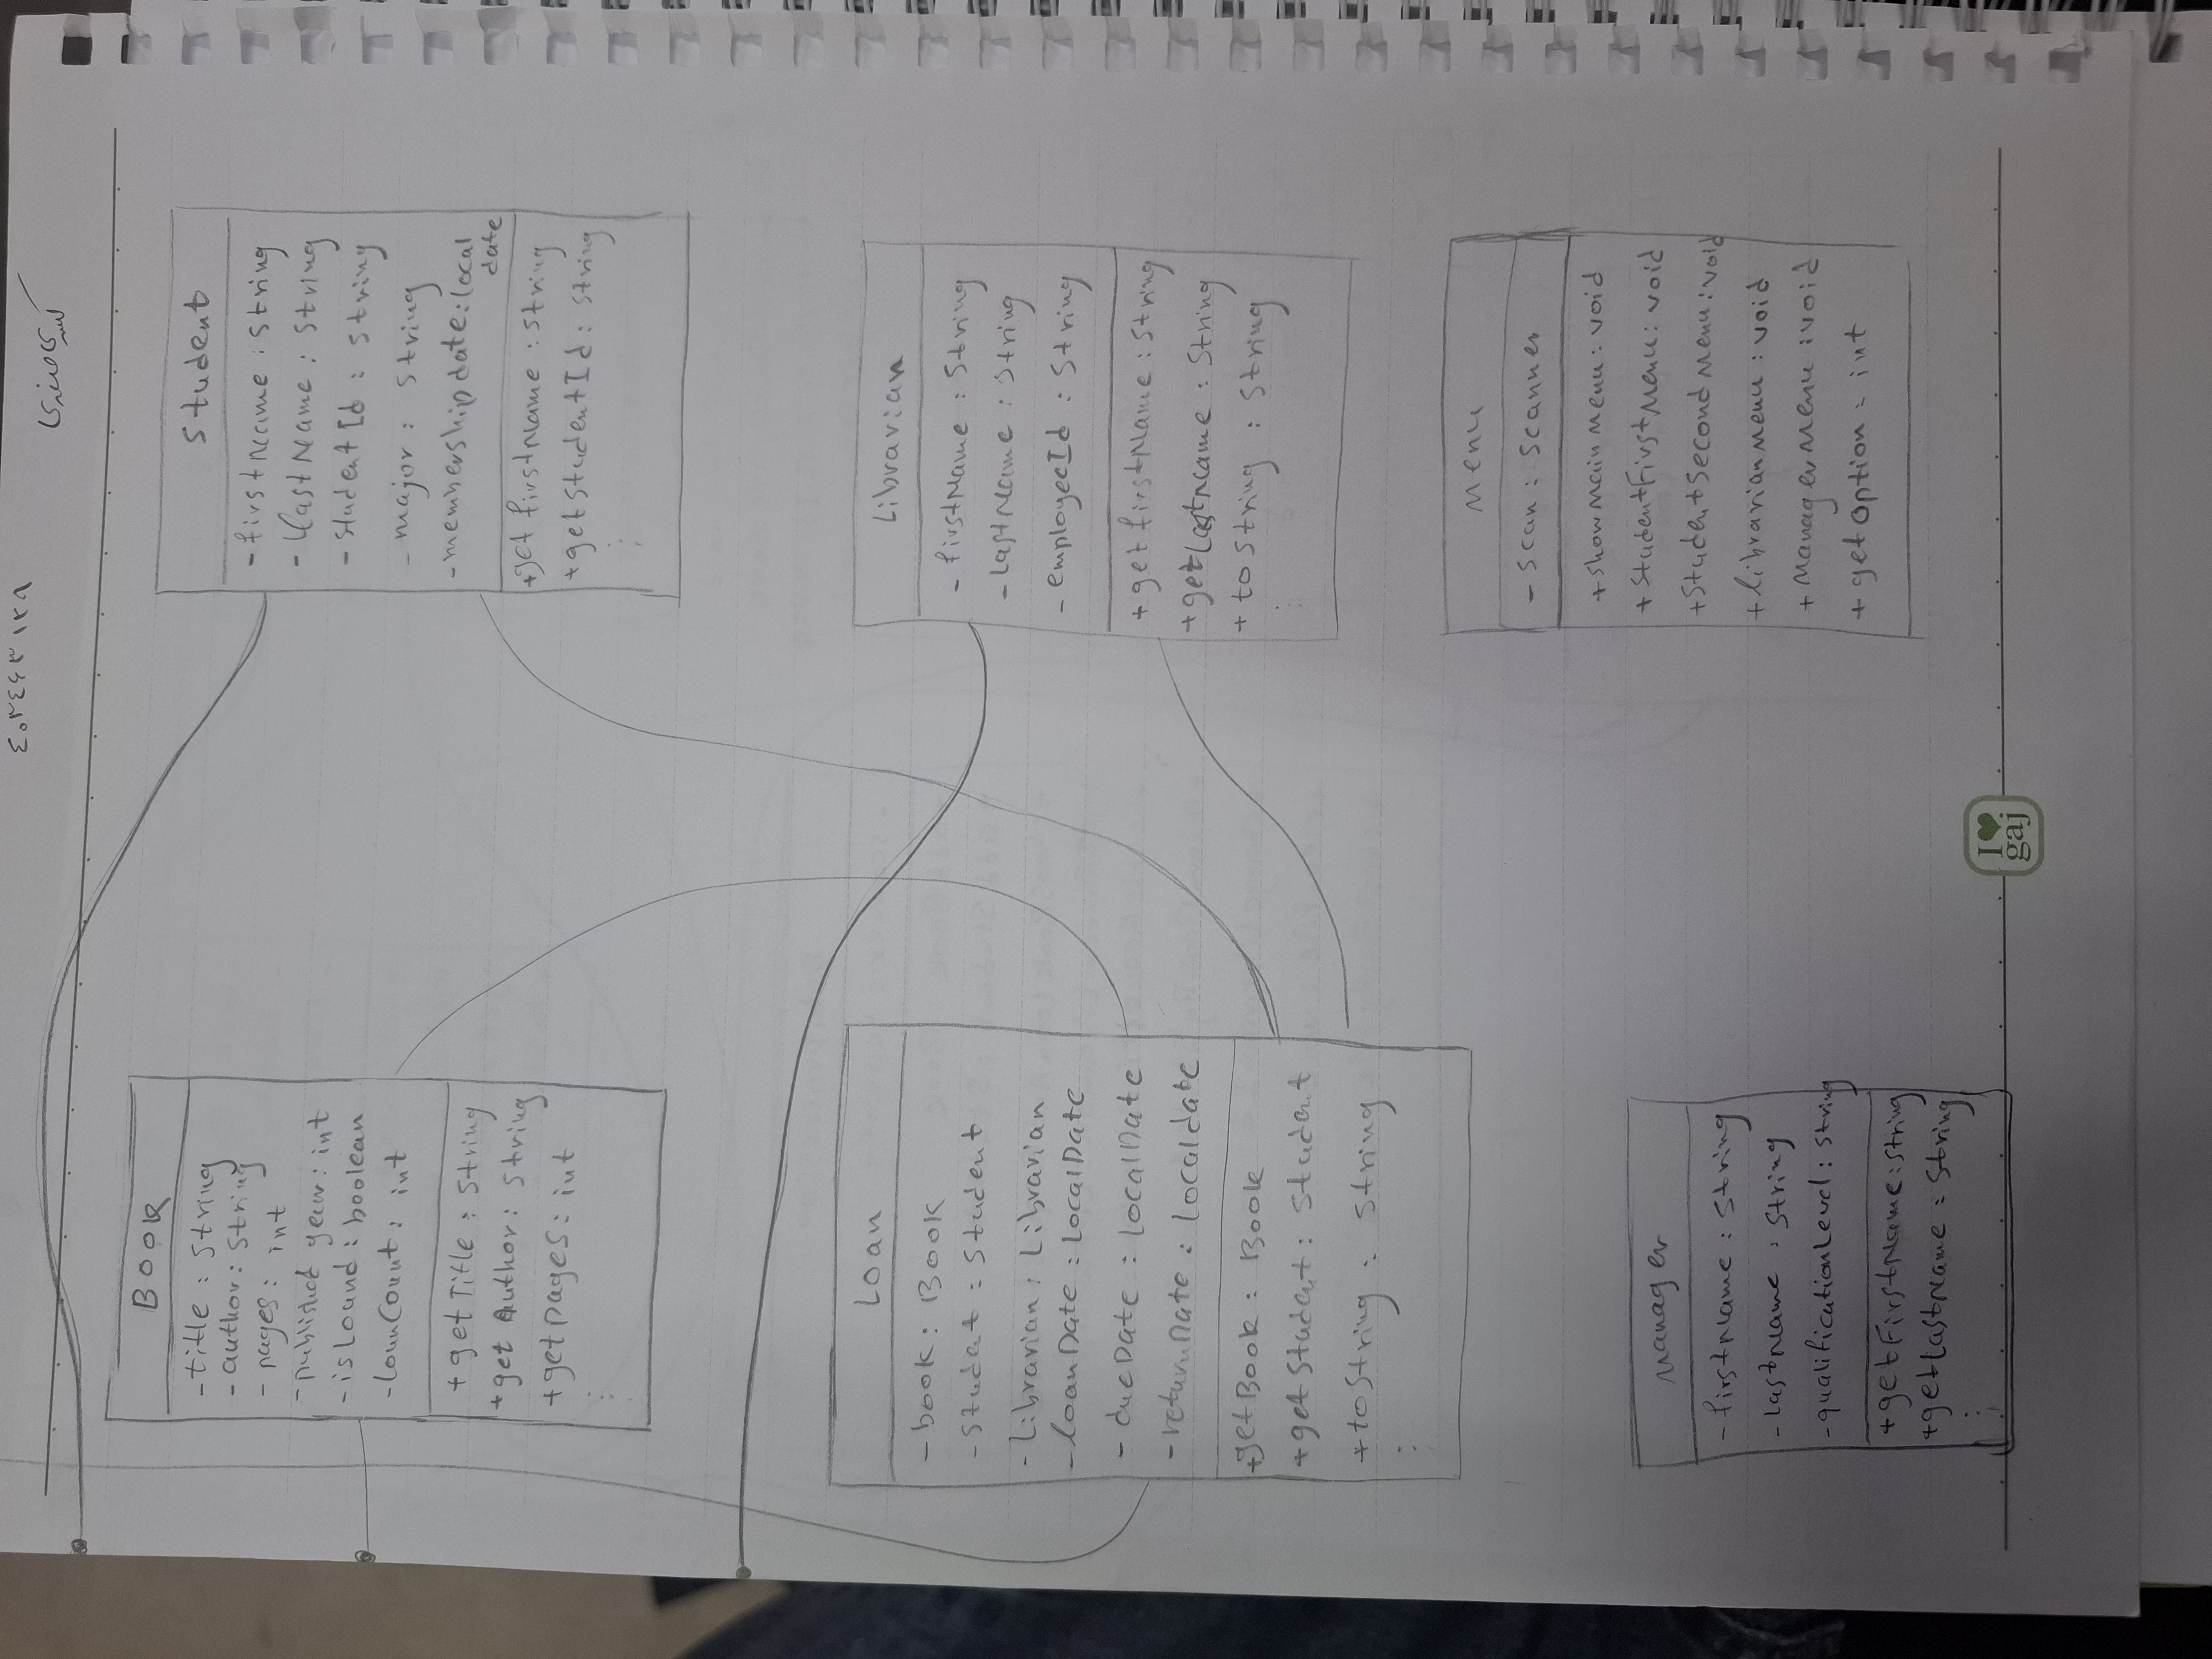 ٤٠٢٤٤٣١٢٨
کسری صفری
Book
- title : String
- author : String
- pages : int
- published year : int
- isLoand : boolean
- loanCount : int
+ getTitle : String
+ get Author : String
+ getpages : int
Student
- firstName : String
- LastName : String
- studentId : String
- major : String
- membershipdate : local
date
+ get firstName : String
+ getStudentId : String
Loan
- book : Book
- Student : Student
- Librarian : Librarian
- loanDate : LocalDate
- dueDate : LocalDate
- returnDate : Localdate
+ getBook : Book
+ get Student : Student
+ toString : String
Librarian
- firstName : String
- LastName : String
- employeeId : String
+ get firstName : String
+ getLastName : String
+ to String : String
Menu
- scan : Scanner
+ showMainMenu : void
+ StudentFirstMenu : void
+ StudentSecondMenu : void
+ librarianMenu : void
+ ManagerMenu : void
+ getOption = int
Manager
- firstName : String
- LastName : String
- qualificationLevel : String
+ getFirstName : String
+ getLastName : String
I♥
gaj